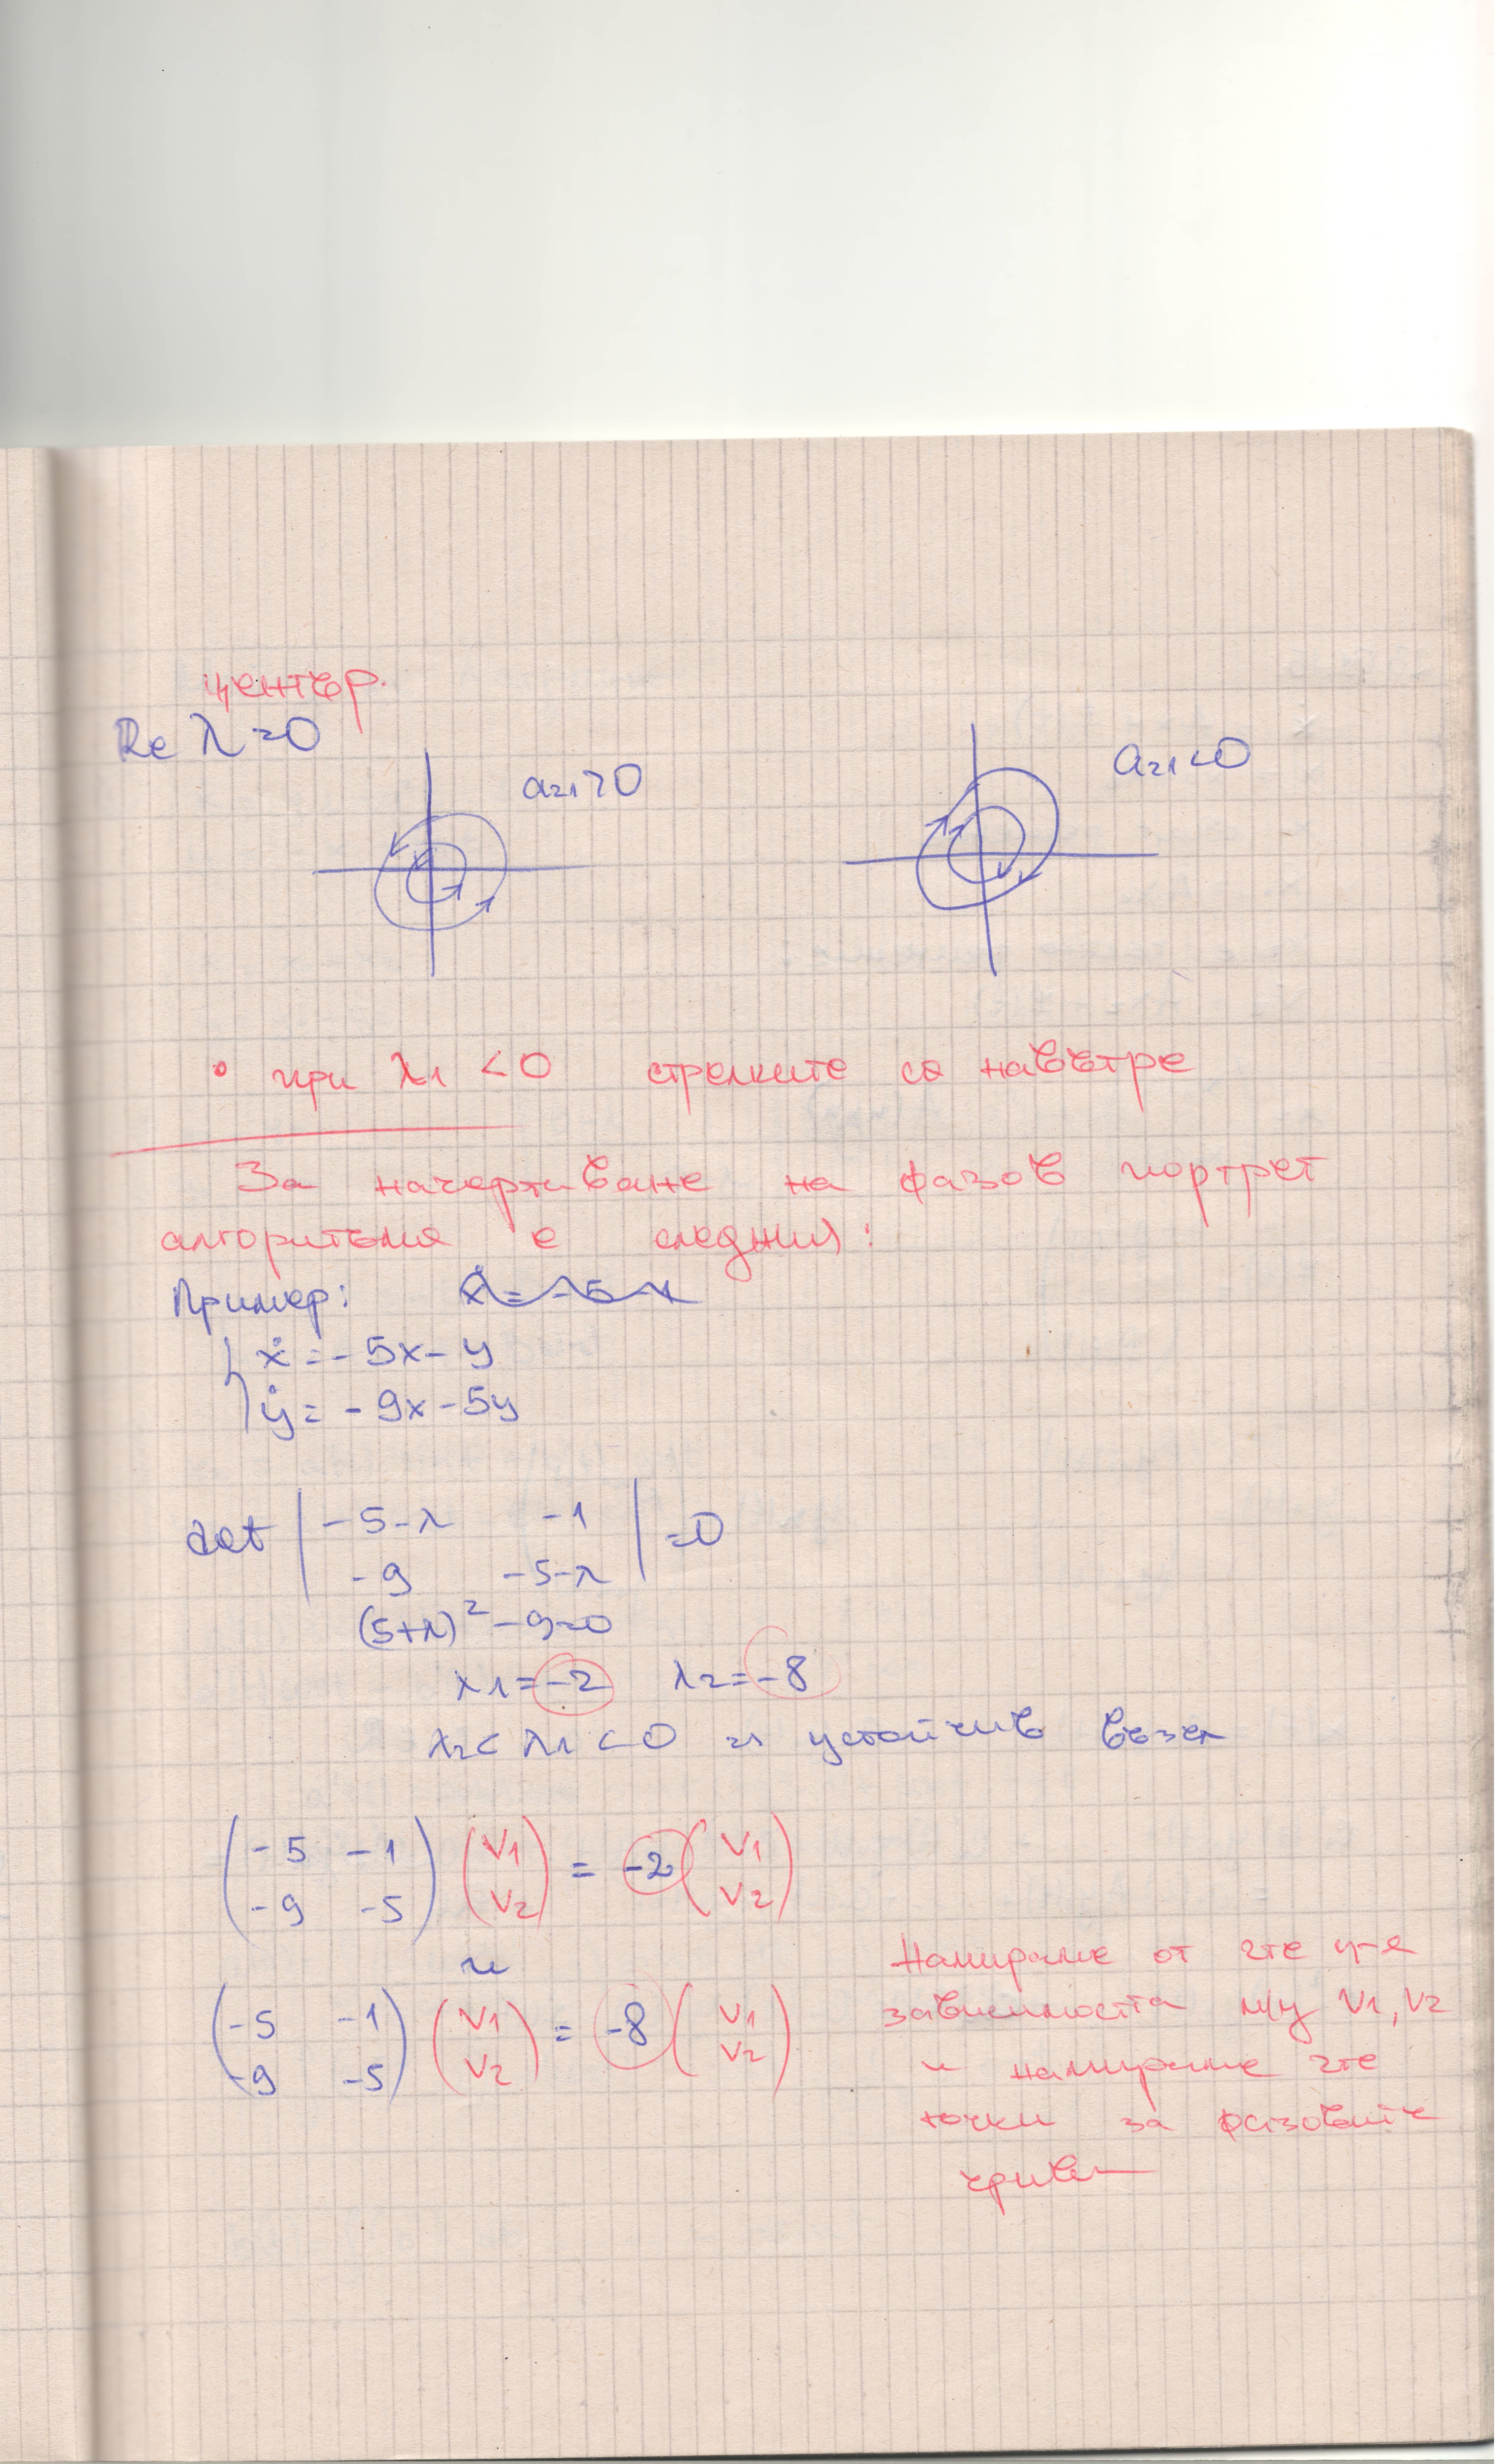 център.
Re λ = 0
a₂₁>0
a₂₁<0
• при λ1 <0 стрелките са навътре
За начертаване на фазов портрет
алгоритъма е следния:
Пример: ẋ = -5 x
ẋ = -5x - y
ẏ = -9x - 5y
det | -5-λ -1 | =0
-9 -5-λ
(5+λ)² - 9=0
λ1 = -2 λ2 = -8
λ2 < λ1 < 0 устойчив възел
( -5 -1 ) ( V1 ) = -2 ( V1 )
( -9 -5 ) ( V2 ) ( V2 )
и
( -5 -1 ) ( V1 ) = -8 ( V1 )
( -9 -5 ) ( V2 ) ( V2 )
Намираме от 2те у-я
зависимостта м/у V1, V2
и намираме 2те
точки за фазовите
криви